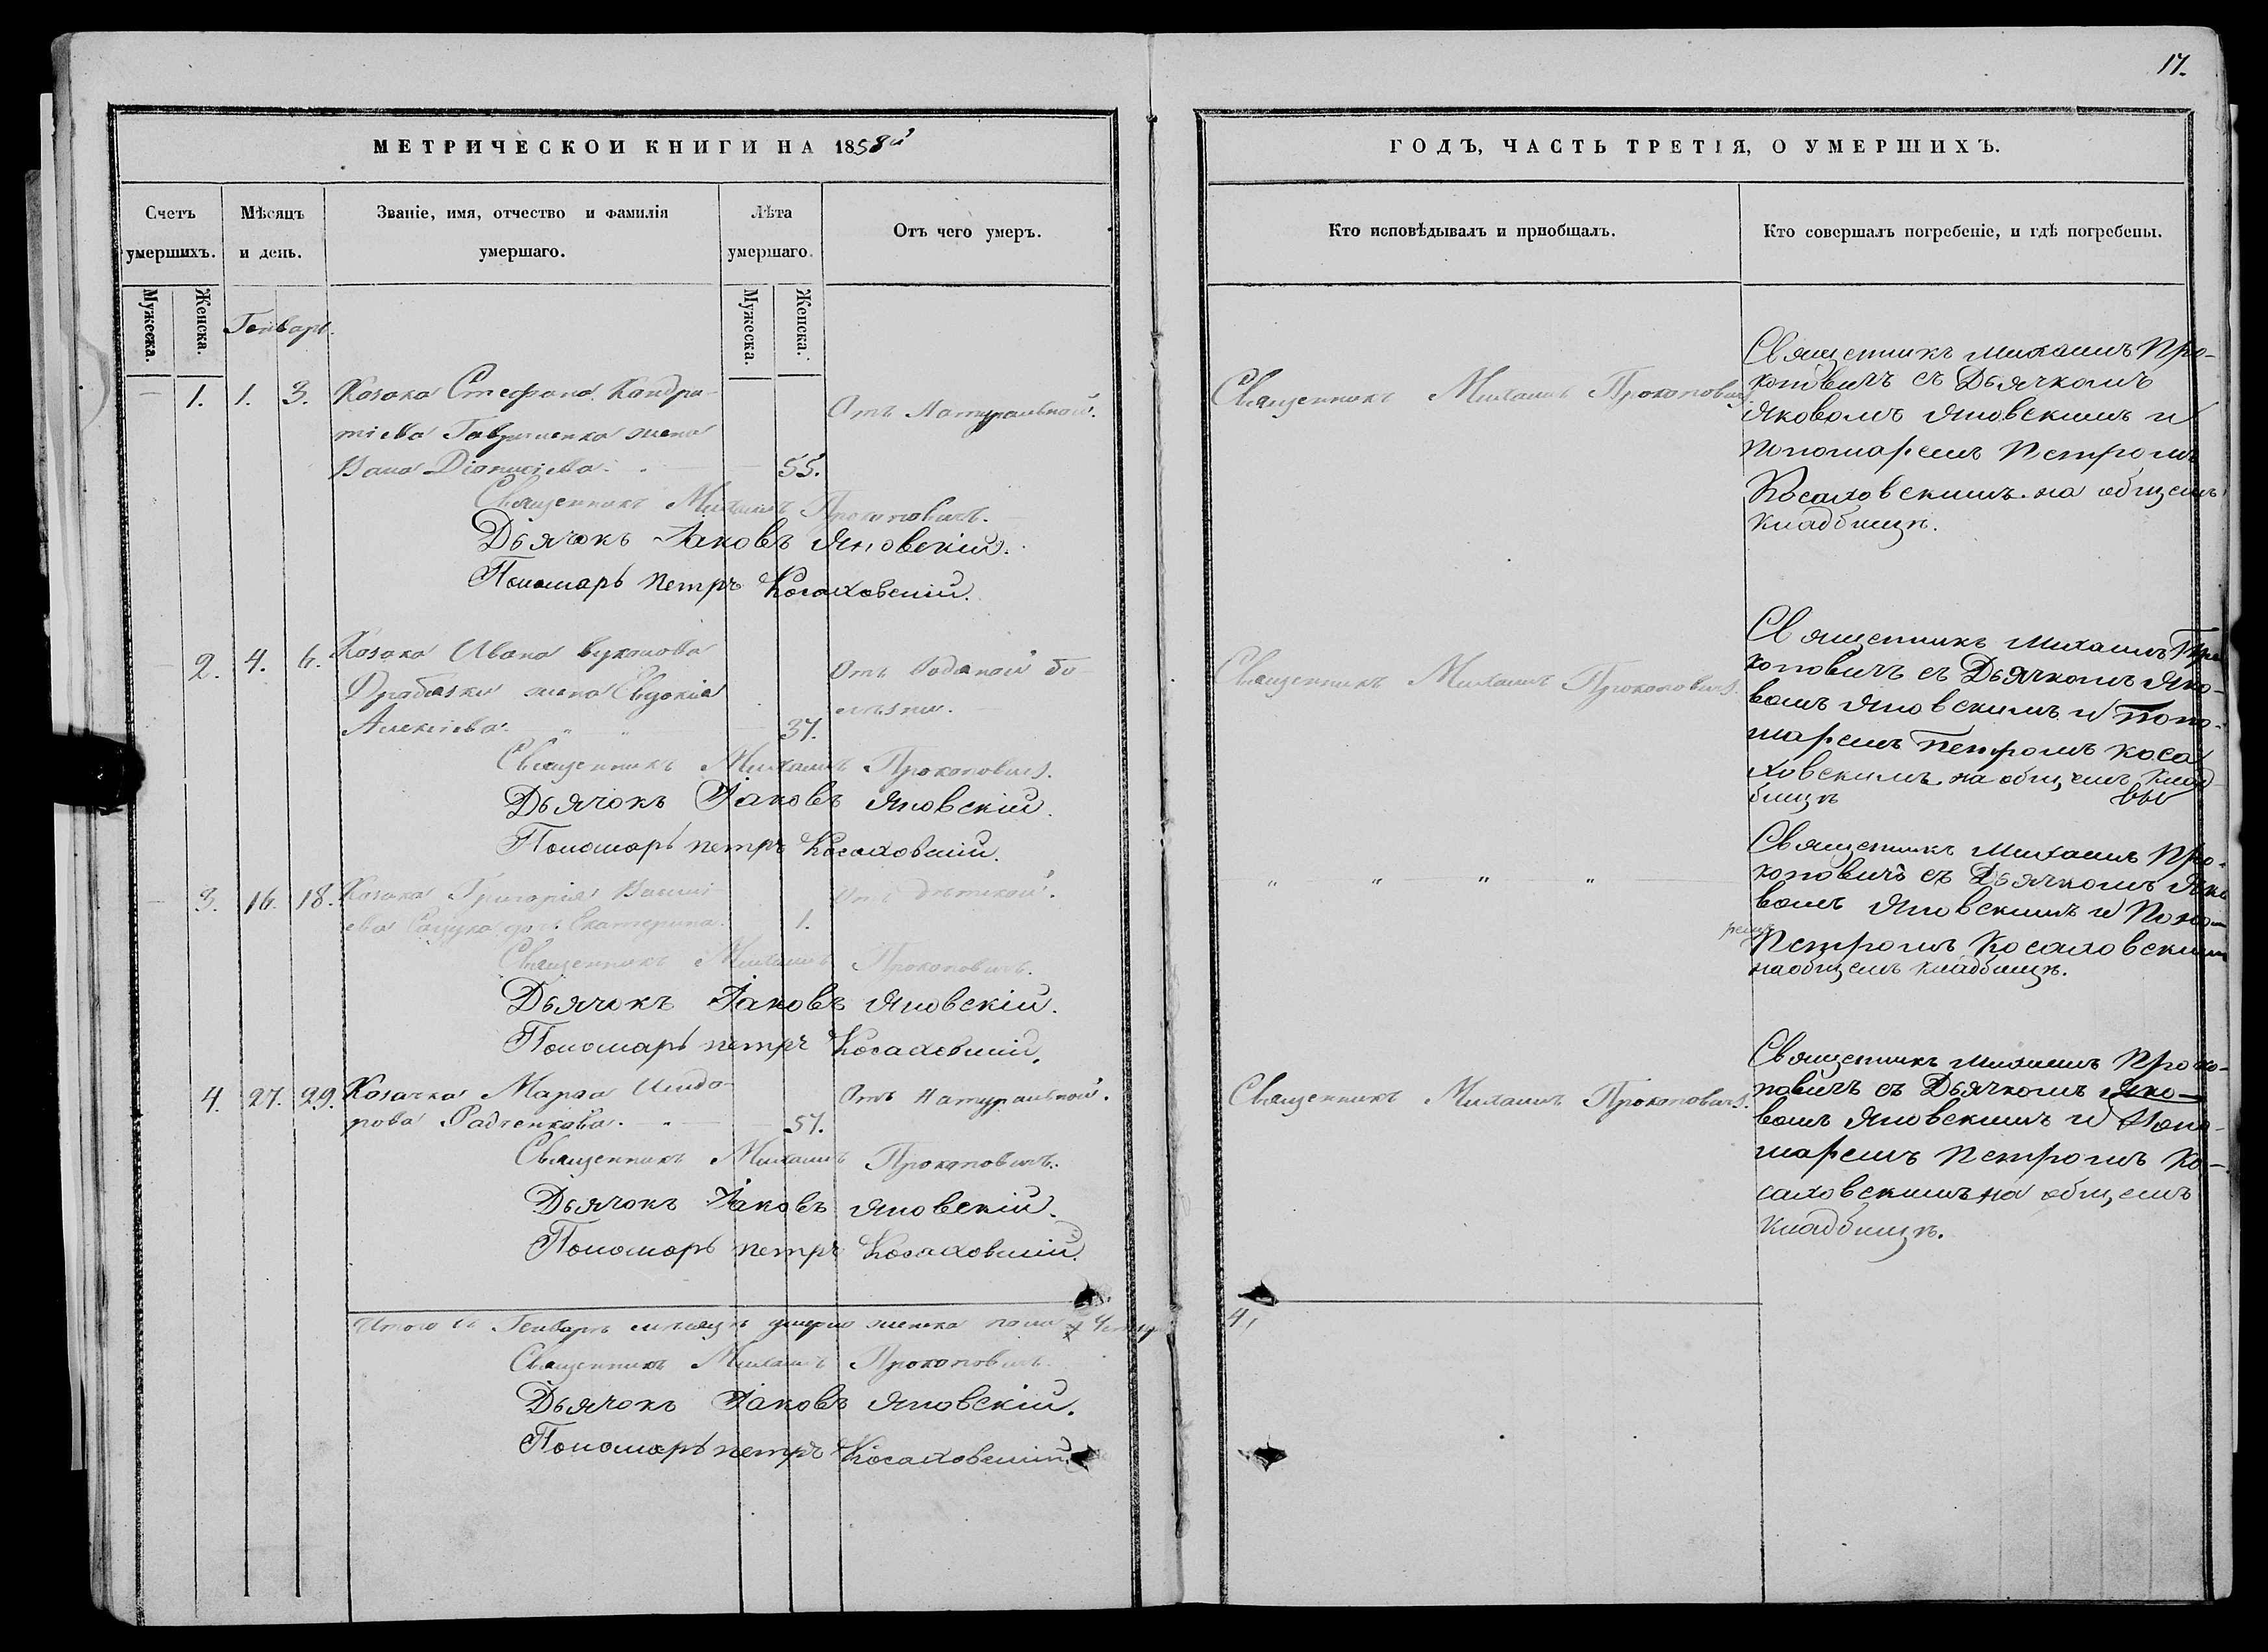 17.
МЕТРИЧЕСКОЙ КНИГИ НА 1858й
ГОДЪ, ЧАСТЬ ТРЕТІЯ, О УМЕРШИХЪ.
Счетъ умершихъ.
Мѣсяцъ и день.
Званіе, имя, отчество и фамилія умершаго.
Лѣта умершаго.
Отъ чего умеръ.
Кто исповѣдывалъ и пріобщалъ.
Кто совершалъ погребеніе, и гдѣ погребены.
Мужеска.
Женска.
Генварь.
Мужеска.
Женска.
1. 1. 3. Козака Стефана Кондра-
тіева Гавриленка жена
Дионисіева 55.
Отъ Натуральной.
Священникъ Михаилъ Прокоповичъ.
Дьячокъ Іаковъ Яновскій.
Пономарь Петръ Косаховскій.
Священникъ Михаилъ Прокоповичъ
Священникъ Михаилъ Про-
коповичъ съ Дьячкомъ
Яковомъ Яновскимъ и
Пономаремъ Петромъ
Косаховскимъ на общемъ
кладбищѣ.
2. 4. 6. Козака Ивана
жена Евдокія
Алексіева 37.
Отъ бо-
лѣзни.
Священникъ Михаилъ Прокоповичъ.
Дьячокъ Іаковъ Яновскій.
Пономарь Петръ Косаховскій.
Священникъ Михаилъ Прокоповичъ.
Священникъ Михаилъ Про
коповичъ съ Дьячкомъ Яко-
вомъ Яновскимъ и Поно-
маремъ Петромъ Коса
ховскимъ на общемъ клад
бищѣ
3. 16. 18. Козака Григорія Васили-
ева дочь Екатерина. 1.
Отъ дѣтской.
Священникъ Михаилъ Прокоповичъ.
Дьячокъ Іаковъ Яновскій.
Пономарь Петръ Косаховскій.
" " " "
Священникъ Михаилъ Про-
коповичъ съ Дьячкомъ Яко
вомъ Яновскимъ и Поно
Петромъ Косаховскимъ
на общемъ кладбищѣ.
4. 27. 29. Козачка Марѳа Исидо-
рова Радченкова. 57.
Отъ Натуральной.
Священникъ Михаилъ Прокоповичъ.
Дьячокъ Іаковъ Яновскій.
Пономарь Петръ Косаховскій.
Священникъ Михаилъ Прокоповичъ.
Священникъ Михаилъ Проко-
повичъ съ Дьячкомъ Яко-
вомъ Яновскимъ и Поно-
маремъ Петромъ Ко-
саховскимъ на общемъ
кладбищѣ.
Итого въ Генварѣ мѣсяцѣ умерло женска пола 4
Священникъ Михаилъ Прокоповичъ.
Дьячокъ Іаковъ Яновскій.
Пономарь Петръ Косаховскій.